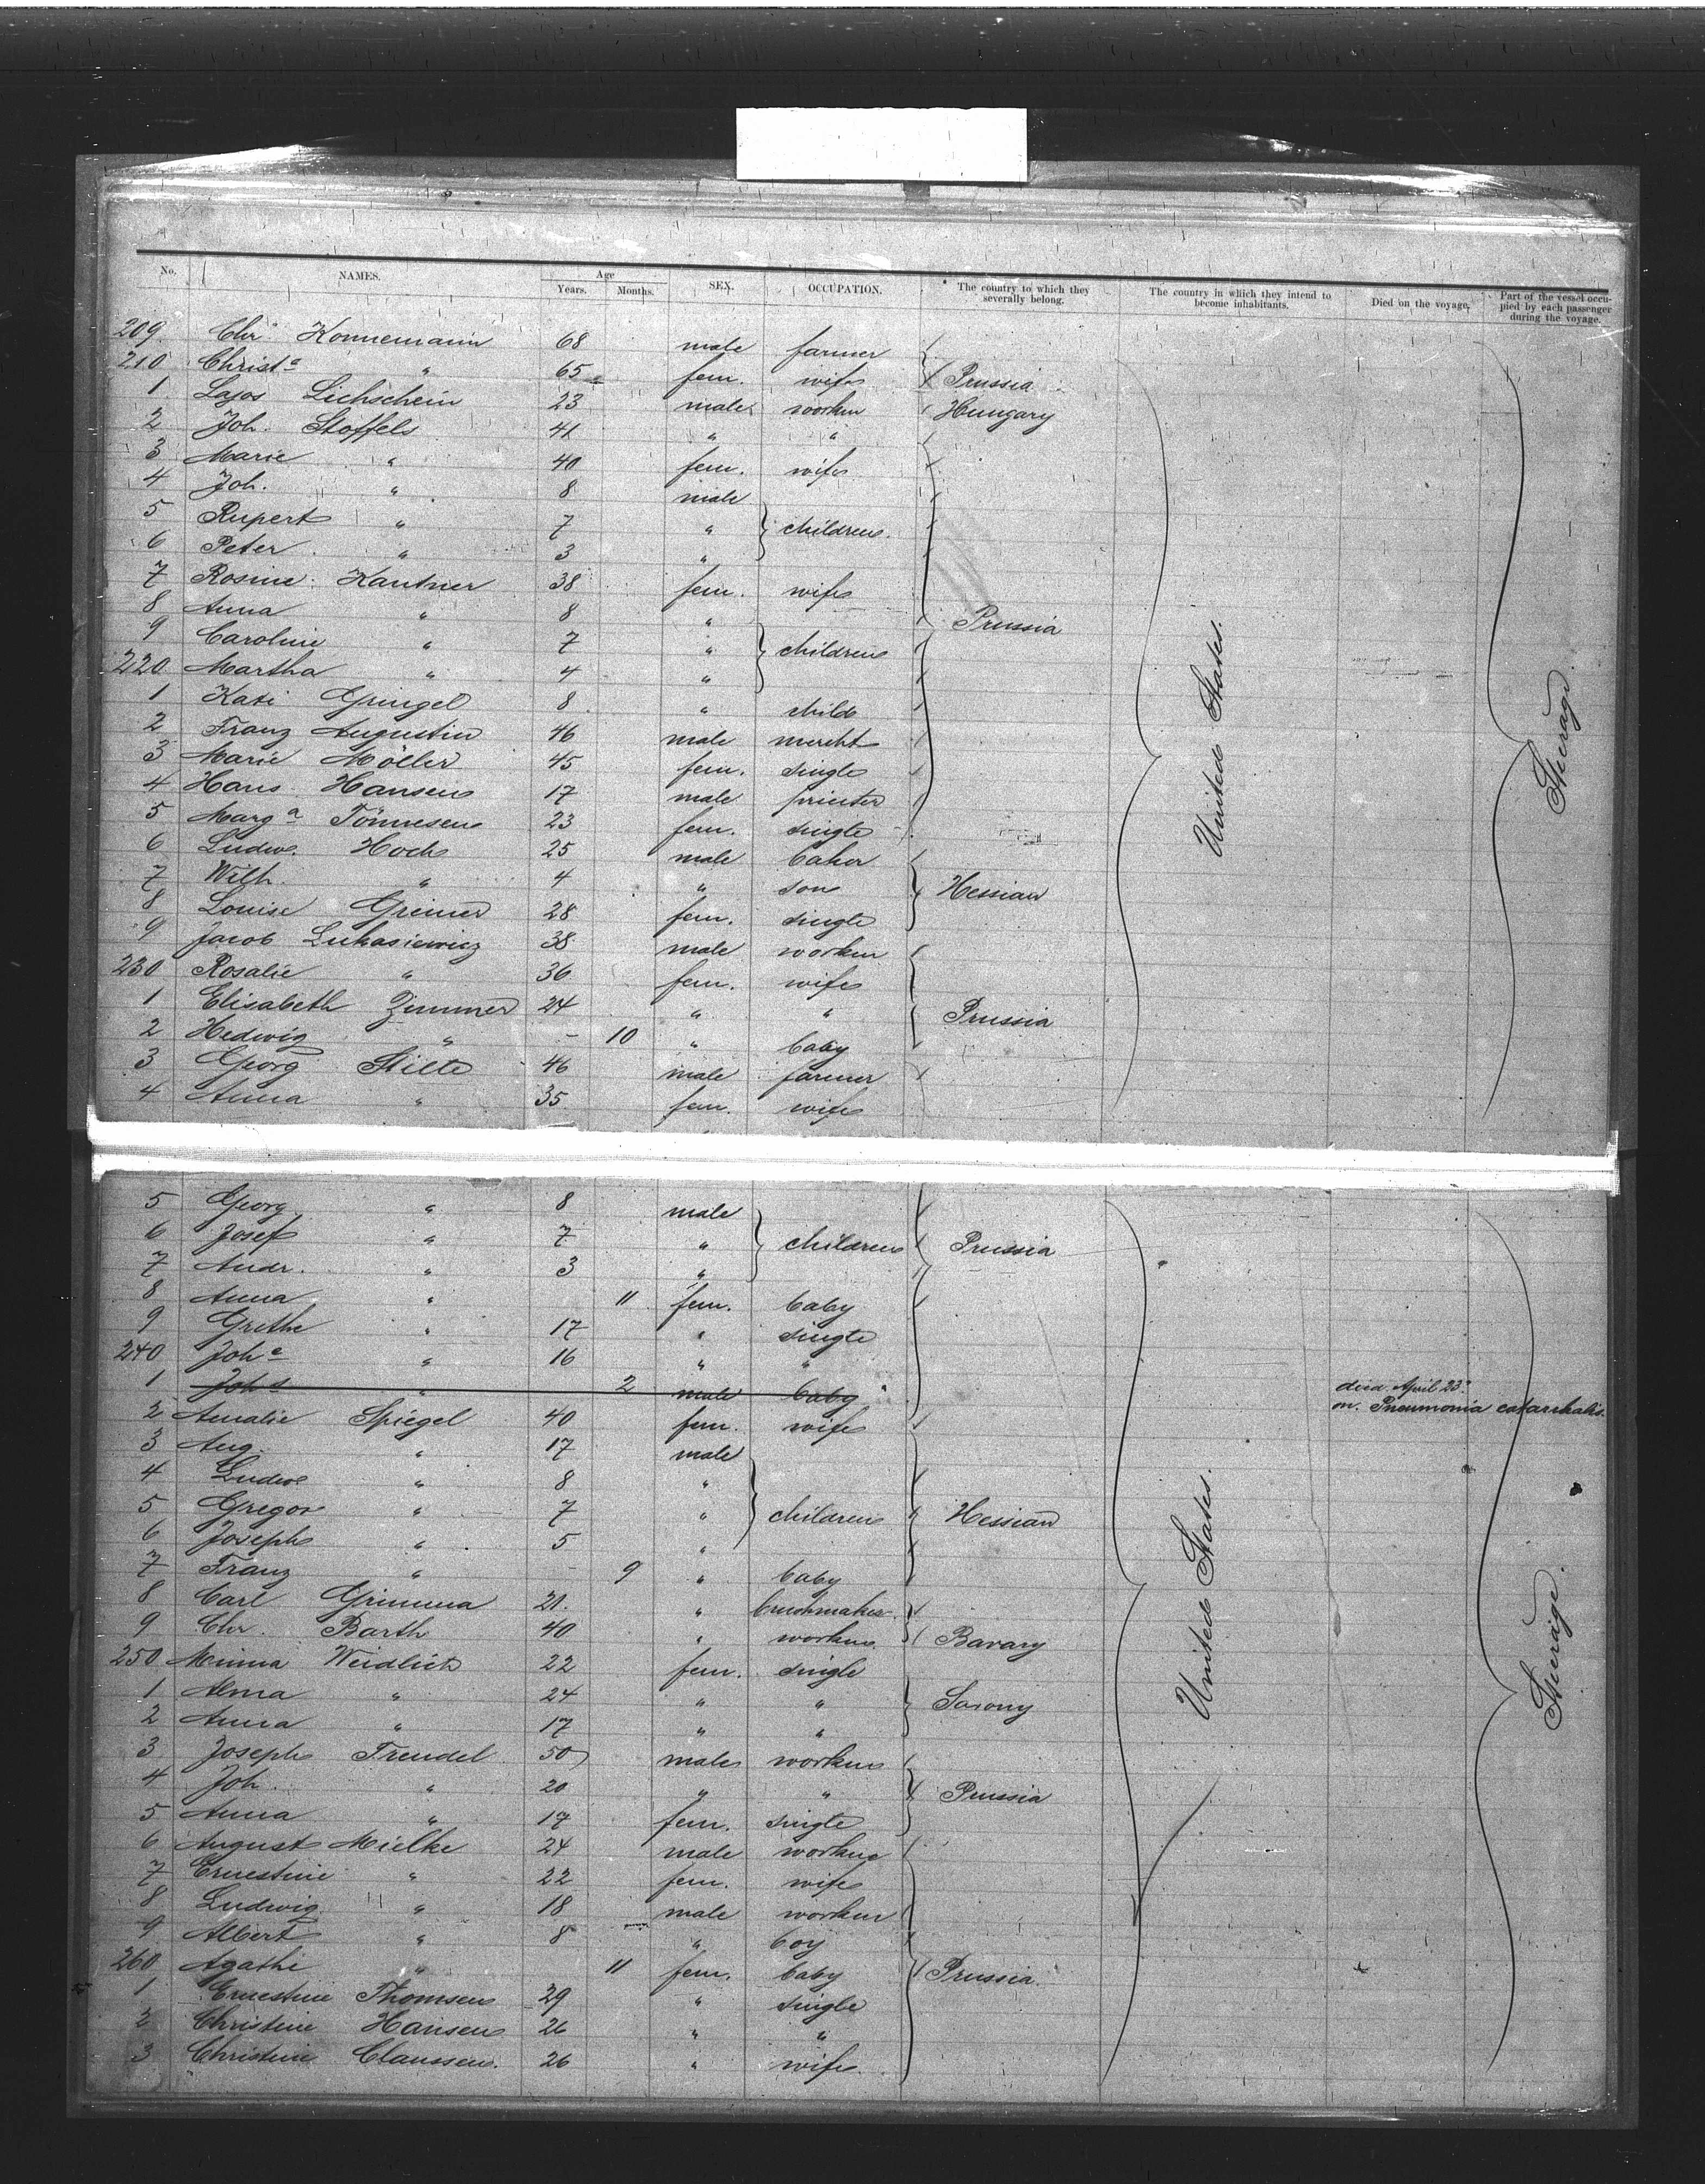 No. NAMES. Age Years. Months. SEX. OCCUPATION. The country to which they severally belong. The country in which they intend to become inhabitants. Died on the voyage. Part of the vessel occupied by each passenger during the voyage.
209. Chr. Konnemann 68 male farmer
210 Christe " 65 fem. wife Prussia
1 Lajos Lichschein 23 male worker Hungary
2 Joh. Stoffels 41 " "
3 Marie " 40 fem. wife
4 Joh. " 8 male
5 Rupert " 7 " children
6 Peter " 3 "
7 Rosine Kantner 38 fem. wife
8 Anna " 8 " Prussia
9 Caroline " 7 " children
220 Martha " 4 "
1 Kati Gungel 8 " child
2 Franz Augustin 46 male mercht
3 Marie Möller 45 fem. single
4 Hans Hansen 17 male printer
5 Marga Tönnesen 23 fem. single
6 Ludw. Hoch 25 male baker
7 Wilh. " 4 " son Hessian
8 Louise Greiner 28 fem. single
9 Jacob Lukasiewicz 38 male worker
230 Rosalie " 36 fem. wife
1 Elisabeth Zimmer 24 " " Prussia
2 Hedwig " - 10 " baby
3 Georg Stilte 46 male farmer
4 Anna " 35 fem. wife
United States.
Steerage.
5 Georg " 8 male
6 Josef " 7 " children Prussia
7 Andr. " 3 "
8 Anna " 11 fem. baby
9 Grethe " 17 " single
240 Johe " 16 " "
1 Johs " 2 male baby died April 23d on Pneumonia catarrhalis.
2 Amalie Spiegel 40 fem. wife
3 Aug. " 17 male
4 Ludw. " 8 "
5 Gregor " 7 " children Hessian
6 Joseph " 5 "
7 Franz " - 9 " baby
8 Carl Grimma 21. " brushmaker
9 Chr. Barth 40 " worker Bavary
250 Minna Weidlich 22 fem. single
1 Alma " 24 " " Saxony
2 Anna " 17 " "
3 Joseph Trendel 50 male worker
4 Joh. " 20 " " Prussia
5 Anna " 17 fem. single
6 August Mielke 24 male worker
7 Ernestine " 22 fem. wife
8 Ludwig " 18 male worker
9 Albert " 8 " boy
260 Agathe " 11 fem. baby Prussia
1 Ernestine Thomsen 29 " single
2 Christine Hansen 26 " "
3 Christine Claussen. 26 " wife
United States.
Steerage.